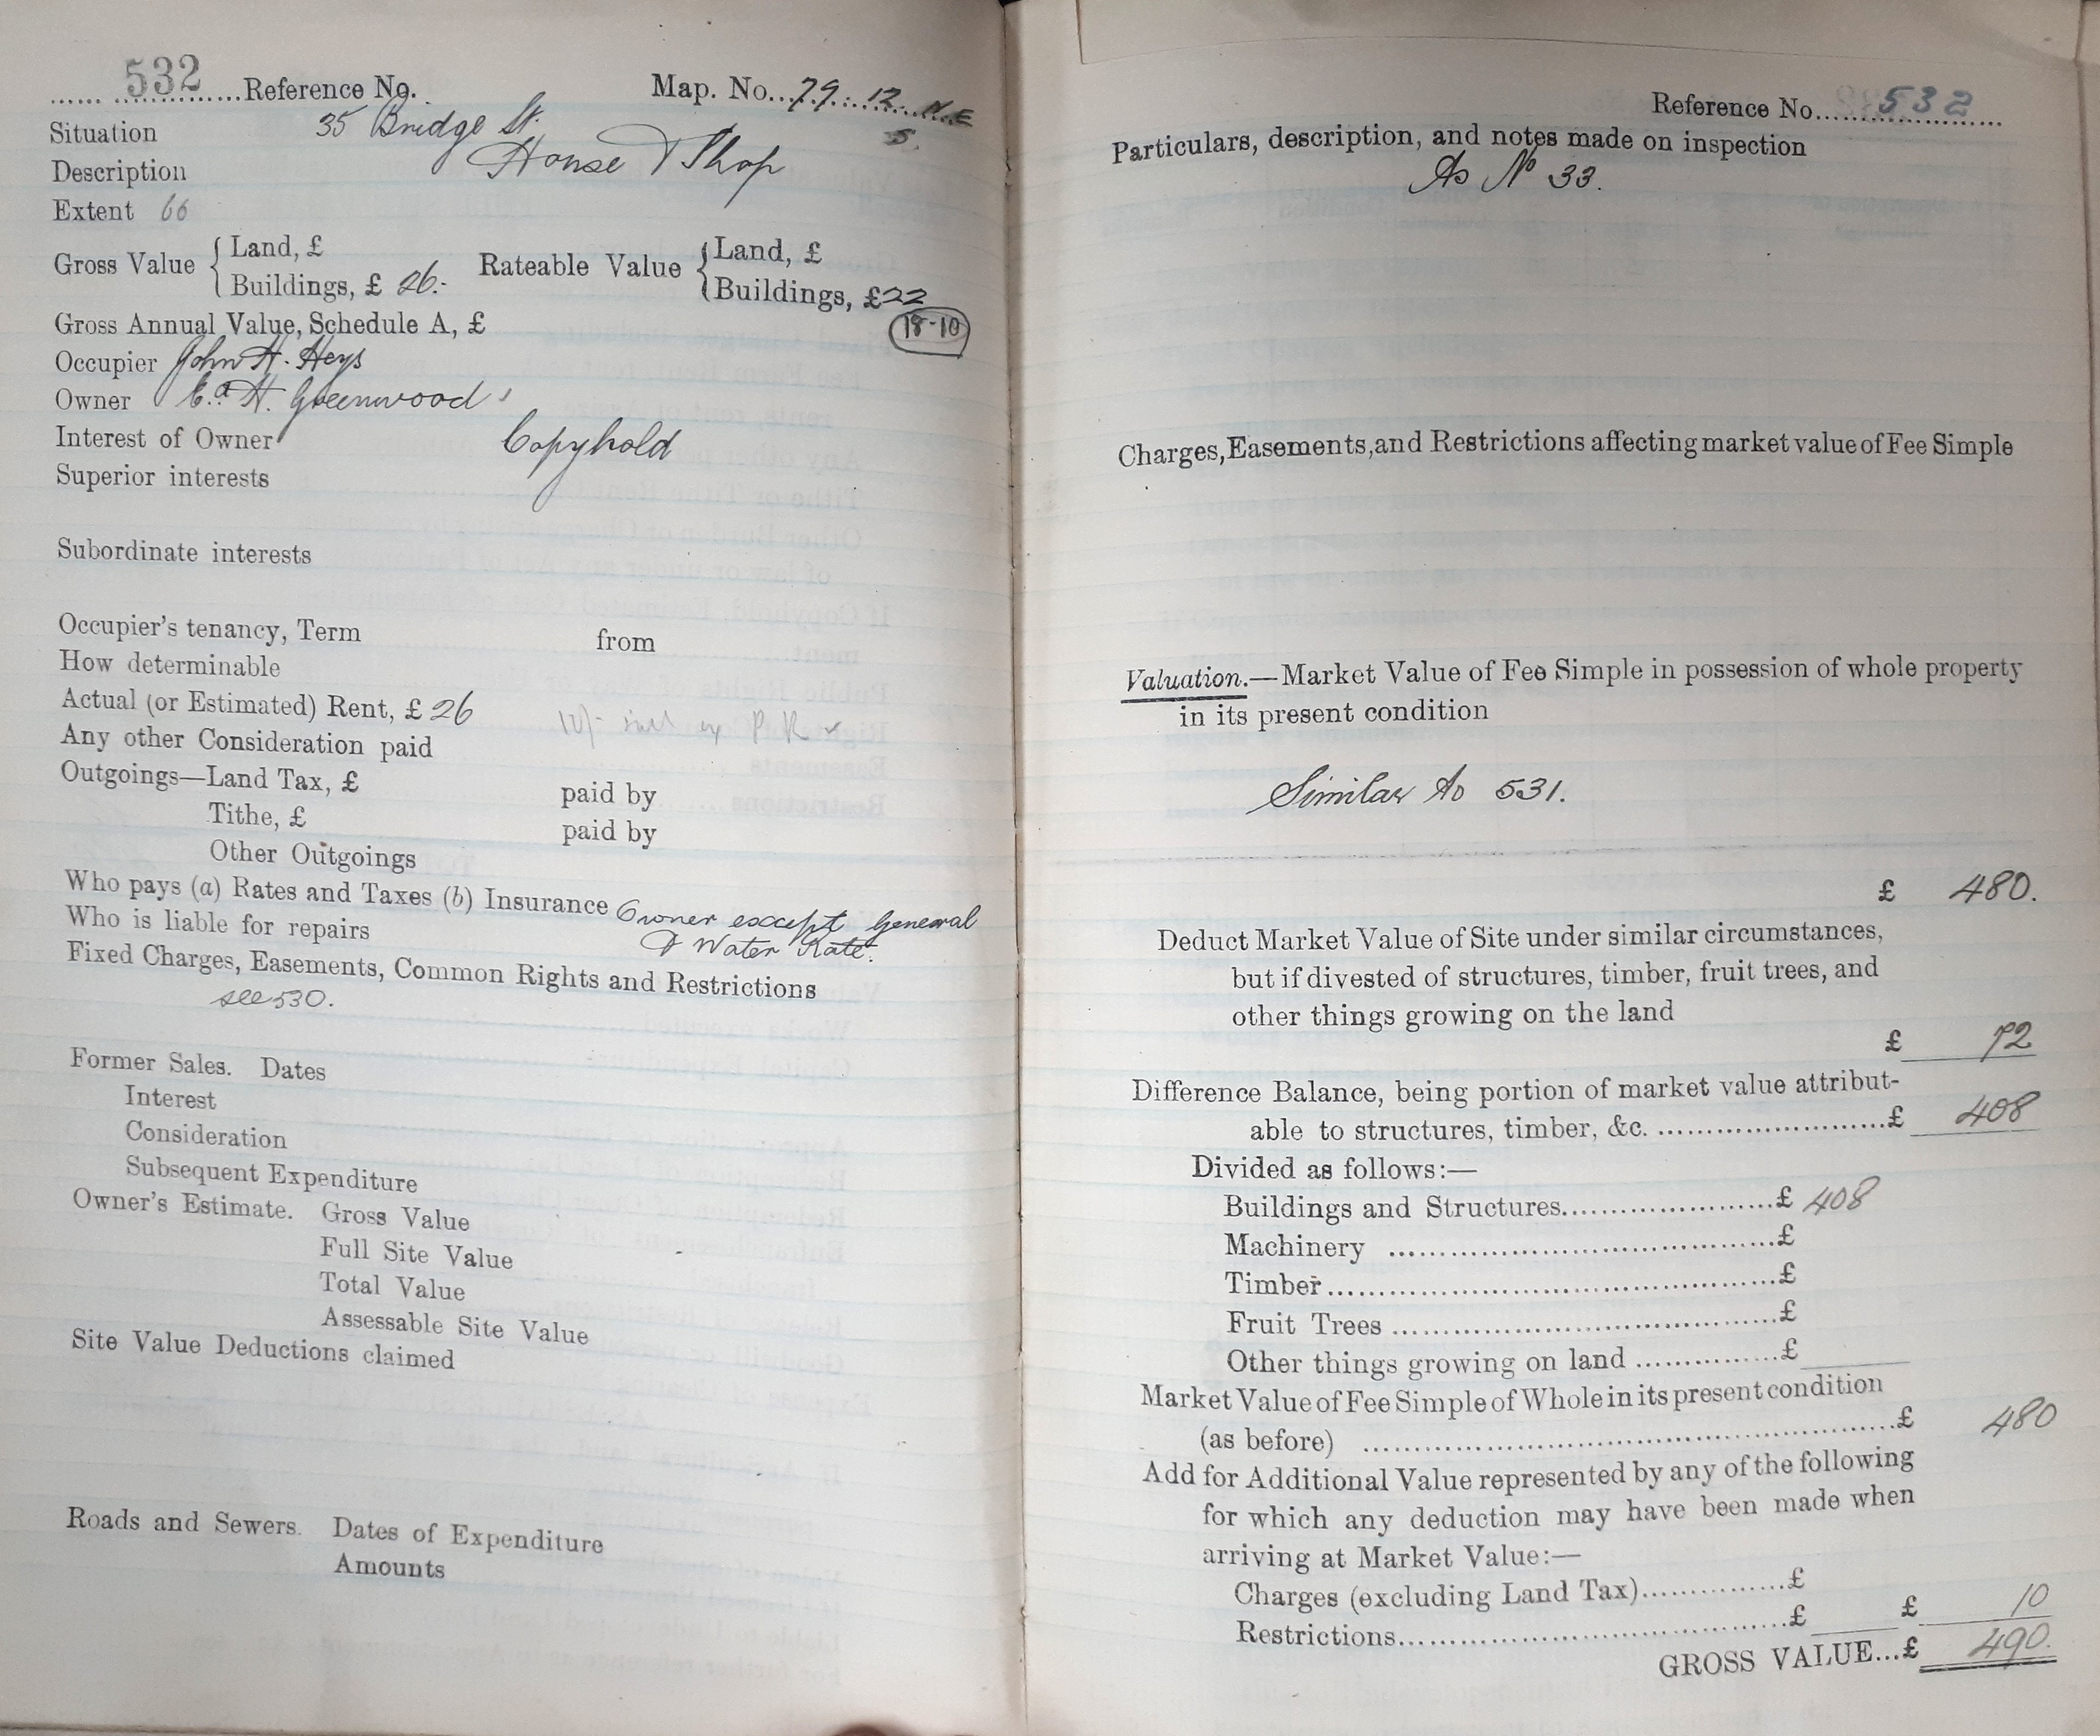 532 Reference No.
Map. No. 79. 12. N.E
5.
Situation 35 Bridge St.
Description House & Shop
Extent 66
Gross Value { Land, £
Buildings, £ 26.-
Rateable Value { Land, £
Buildings, £22
18-10
Gross Annual Value, Schedule A, £
Occupier John H. Heys
Owner H. Greenwood
Interest of Owner Copyhold
Superior interests
Subordinate interests
Occupier's tenancy, Term from
How determinable
Actual (or Estimated) Rent, £ 26 10/-
Any other Consideration paid
Outgoings—Land Tax, £ paid by
Tithe, £ paid by
Other Outgoings
Who pays (a) Rates and Taxes (b) Insurance Owner except General
Who is liable for repairs & Water Rate.
Fixed Charges, Easements, Common Rights and Restrictions
see 530.
Former Sales. Dates
Interest
Consideration
Subsequent Expenditure
Owner's Estimate. Gross Value
Full Site Value
Total Value
Assessable Site Value
Site Value Deductions claimed
Roads and Sewers. Dates of Expenditure
Amounts
Reference No. 532
Particulars, description, and notes made on inspection
As No 33.
Charges, Easements, and Restrictions affecting market value of Fee Simple
Valuation.—Market Value of Fee Simple in possession of whole property
in its present condition
Similar to 531.
£ 480.
Deduct Market Value of Site under similar circumstances,
but if divested of structures, timber, fruit trees, and
other things growing on the land
£ 72
Difference Balance, being portion of market value attribut-
able to structures, timber, &c. £ 408
Divided as follows:—
Buildings and Structures £ 408
Machinery £
Timber £
Fruit Trees £
Other things growing on land £
Market Value of Fee Simple of Whole in its present condition
(as before) £ 480
Add for Additional Value represented by any of the following
for which any deduction may have been made when
arriving at Market Value:—
Charges (excluding Land Tax) £
Restrictions £ £ 10
GROSS VALUE...£ 490.